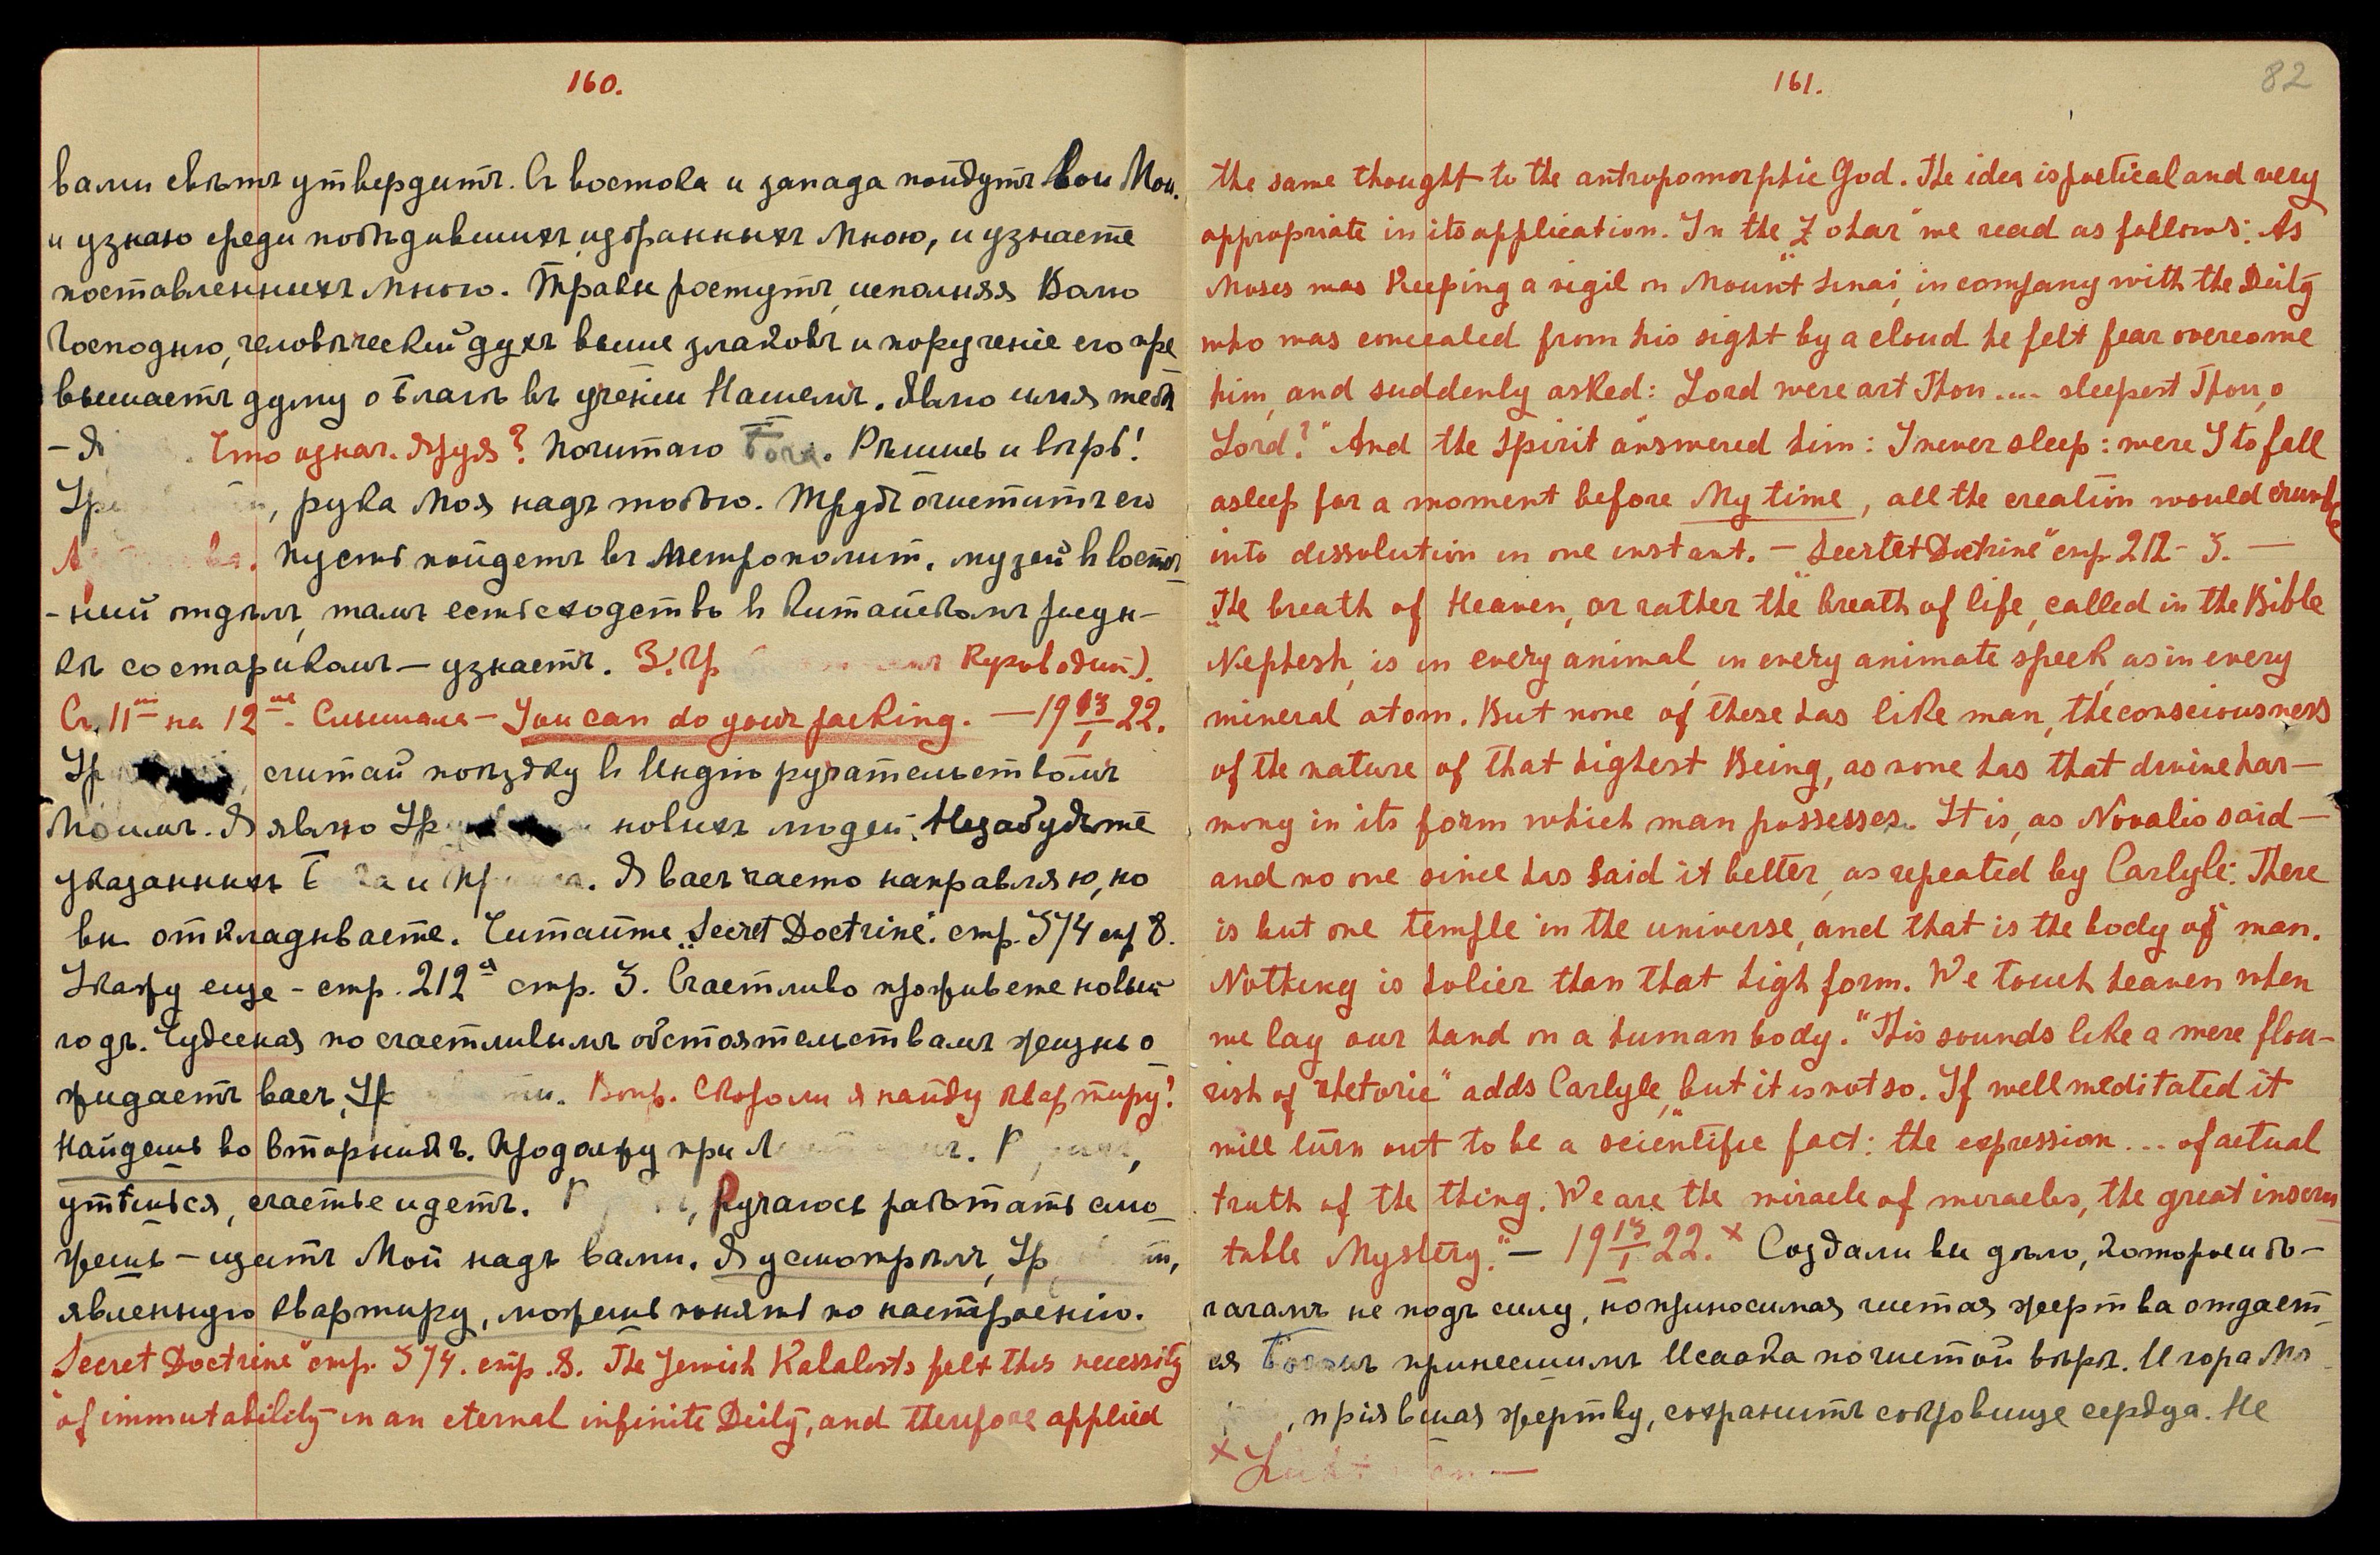 160.
вами свѣтъ утвердитъ. Съ востока и запада пойдутъ вои Мои.
и узнаю среди побѣдившихъ избранныхъ Мною, и узнаете
поставленныхъ Мною. Травы ростутъ, исполняя Волю
Господню, человѣческій духъ выше злаковъ и порученіе его пре
вышаетъ думу о благѣ въ ученіи Нашемъ. Явлю имя тебѣ
– Я Что означ. Яруя? Почитаю Бога. Рѣшишь и вѣрь!
Ур , рука Моя надъ тобою. Трудъ очиститъ его
Пусть пойдетъ въ Метрополит. музей в восточ
-ный отдѣлъ, тамъ есть сходство в китайскомъ рисун-
кѣ со старикомъ – узнаетъ. Руководит).
Съ 11го на 12ое. Слышала – You can do your packing. — 19 13/I 22.
Ур считай поѣздку в Индію ручательствомъ
Моимъ. Я явлю Ур новыхъ людей. Не забудьте
указанныхъ и . Я васъ часто направляю, но
вы откладываете. Читайте „Secret Doctrine". стр. 374 стр 8.
Укажу еще – стр. 212ая стр. 3. Счастливо проживете новый
годъ. Чудесная по счастливымъ обстоятельствамъ жизнь о
жидаетъ васъ, Ур . Вопр. Скоро ли я найду квартиру?
Найдешь во вторникъ. Продолжу при .
утѣшься, счастье идетъ. , ручаюсь работать смо
жешь – щитъ Мой надъ вами. Я усмотрѣлъ, Ур ,
явленную квартиру, можешь понять по настроенію.
Secret Doctrine" стр. 374. стр. 8. The Jewish Kabalists felt this necessity
"of immutability in an eternal infinite Deity, and therefore applied
161.
82
the same thought to the antropomorphic God. The idea is poetical and very
appropriate in its application. In the „Zohar" we read as follows: As
Moses was keeping a vigil on Mount Sinai, in company with the Deity
who was concealed from his sight by a cloud he felt fear overcome
him, and suddenly asked: Lord were art Thou .... sleepest Thou, o
Lord?" And the Spirit answered him: I never sleep: were I to fall
asleep for a moment before My time, all the creation would crumble
into dissolution in one instant. – Secrtet Doctrine" стр. 212 – 3. —
„The breath of Heaven, or rather the breath of life, called in the Bible
Nephesh, is in every animal, in every animate speck, as in every
mineral atom. But none of these has like man, the consciousness
of the nature of that highest Being, as none has that divine har–
mony in its form which man possesses. It is, as Novalis said –
and no one since has said it better, as repeated by Carlyle: There
is but one temple in the universe, and that is the body of man.
Nothing is holier than that high form. We touch heaven when
we lay our hand on a human body." This sounds like a mere flou–
rish of rhetoric" adds Carlyle, „but it is not so. If well meditated it
will turn out to be a scientific fact: the expression ... of actual
truth of the thing. We are the miracle of miracles, the great inscru
table Mystery." – 19 13/I 22. x Создали вы дѣло, которое и бо–
гачамъ не подъ силу, но приносимая чистая жертва отдает
ся принесшимъ Исаака по чистой вѣрѣ. И гора Мо
, пріявшая жертву, сохранитъ сокровище сердца. Не
x